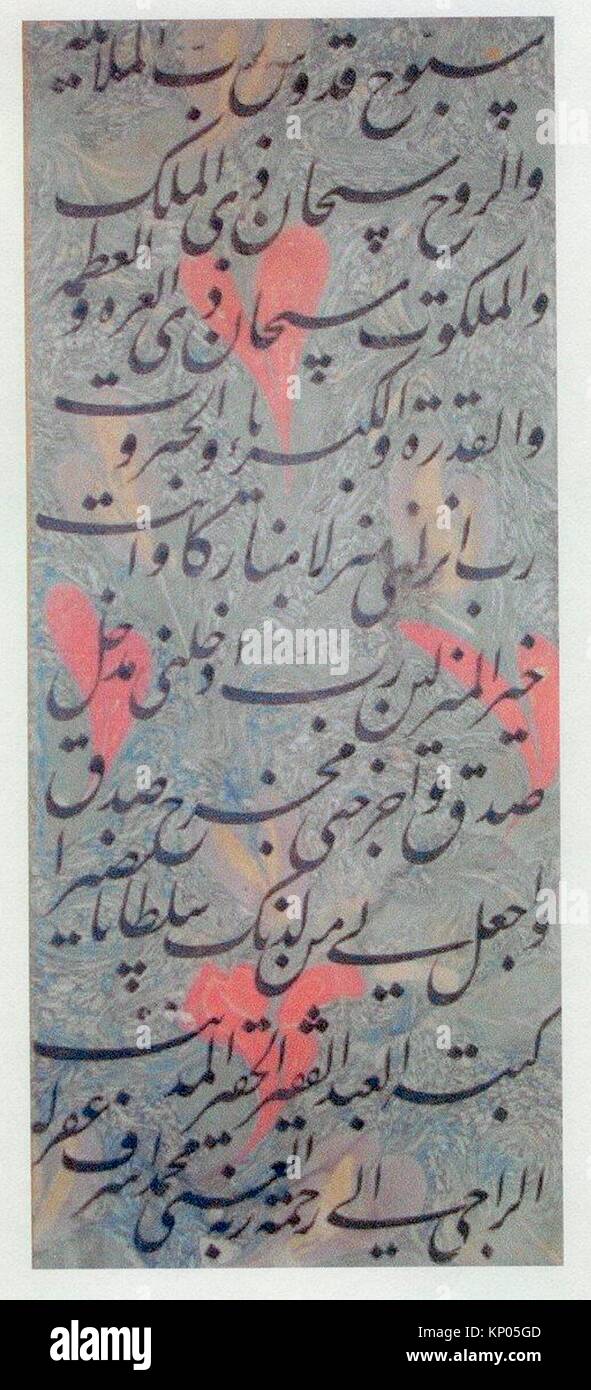 سبوح قدوس رب الملائكة
والروح سبحان ذی الملک
والملکوت سبحان ذی العزة والعظمة
والقدرة والکبریاء والجبروت
رب انزلنی منزلا مبارکا وانت
خیر المنزلین رب ادخلنی مدخل
صدق واخرجنی مخرج صدق
واجعل لی من لدنک سلطانا نصیرا
کتبه العبد الفقیر الحقیر المذنب
الراجی الی رحمة ربه الغنی محمد اشرف غفر له
alamy
Image ID: KP05GD
www.alamy.com